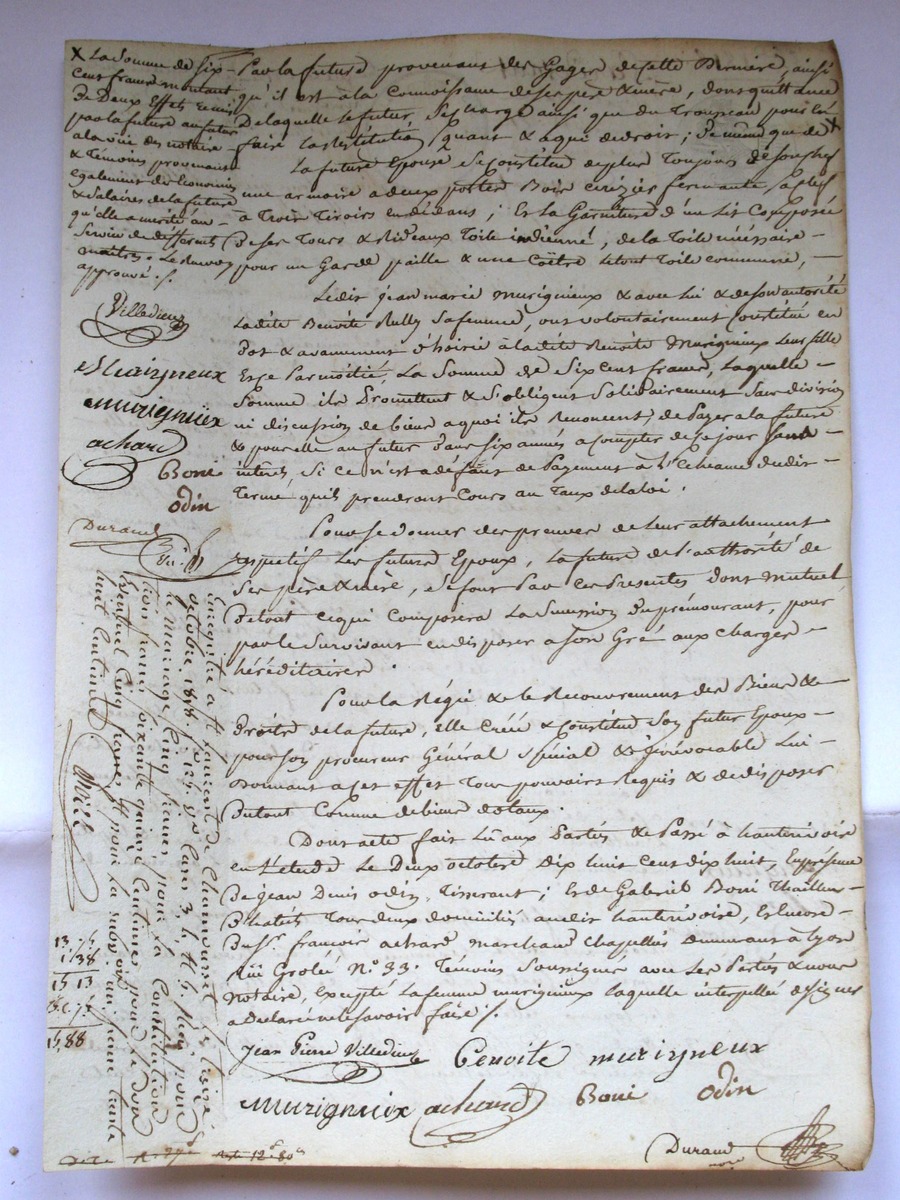 X La Somme de six-
cent francs montant
De Deux Effets remis
par la future au futur
a la vue des notaire
& Témoins provenant
également des Economies
& Salaires de la future
qu'elle a mérité au
Service de differents
maitres. Le Renvoy
approuvé ./.
Villedieu
murigneux
murigniux
achard
Boni
odin
Durand
Par la future provenant des Gages de cette Derniere, ainsi
qu'il est à la Connoissance de ses pere & mère, dont quittance
De laquelle le futur, Se charge ainsi que du Trousseau pour en
faire la restitution quant & a qui de droit; De même que de X
La future Epouse Se constitue de plus Toujours de son chef
une armoire a deux portes Bois Cerizier fermante Sa clef
a Trois Tiroirs en dedans; Et La Garniture d'un Lit Composée
De ses Tours & Rideaux Toile indienne, de la Toile nécessaire
pour un Garde paille & une Coëtre le tout Toile commune,
Ledit jean marie murigneux & avec Lui & de son autorité
Ladite Benoite Rully Sa femme, ont volontairement Constitué en
Dot & avancement d'hoirie à ladite Benoite Murigneux Leur fille
Et ce Par moitié, La Somme de Six Cent francs, Laquelle
Somme ils Promettent & S'obligent Solidairement Sans division
ni discussion de biens a quoi ils Renoncent, de Payer a la future
& pour elle au futur Dans six années a Compter de ce jour Sans
interets, Si ce n'est a défaut de Payement à l'Echeance dudit
Terme qu'ils prendront Cours au Taux de la loi.
Pour se donner des preuves de Leur attachement
respectif Les futurs Epoux, La future de l'authorité de
Ses père & mère, se font Par ces Presentes Dont mutuel
De tout ce qui Composera La Succession Du prémourant, pour
par le Survivant en disposer a Son Gré aux Charges
héréditaires.
Pour la Régie & le Recouvrement des Biens &
Droits de la future, elle Créé & Constitue Son futur Epoux
pour Son procureur Général Spécial & Irrévocable Lui
Donnant a cet effet Tous pouvoirs Requis & de disposer
Du tout Comme de biens dotaux.
Dont acte fait Lû aux Parties & Passé à hauterivoire
en L'etude Le Deux octobre Dix huit Cent dix huit, En présence
De jean Denis odin, Tisserant; Et de Gabriel Boni Thailleur
D'habits Tous deux domiciliés audit hauterivoire, Et encore
Du Sr. francois achard marchand Chapellier Demeurant à Lyon
Rüe Grolée No. 33. Témoins Soussignés avec Les Parties & nous
Notaire, Excepté La femme murigneux laquelle interpellée de signer
a Déclaré ne le Savoir faire ./.
Jean Pierre Villedieu
Benoite murigneux
murigniux
achard
Boni
odin
Durand
Enregistré à St Laurent de Chamousset Le treize
octobre 1818,
le mariage Cinq francs, pour la Constitution
trois francs soixante quinze centimes, pour le don
Eventuel Cinq francs, et pour la subvon. un franc trente
huit centimes
13,75
1,38
15 13
15,88